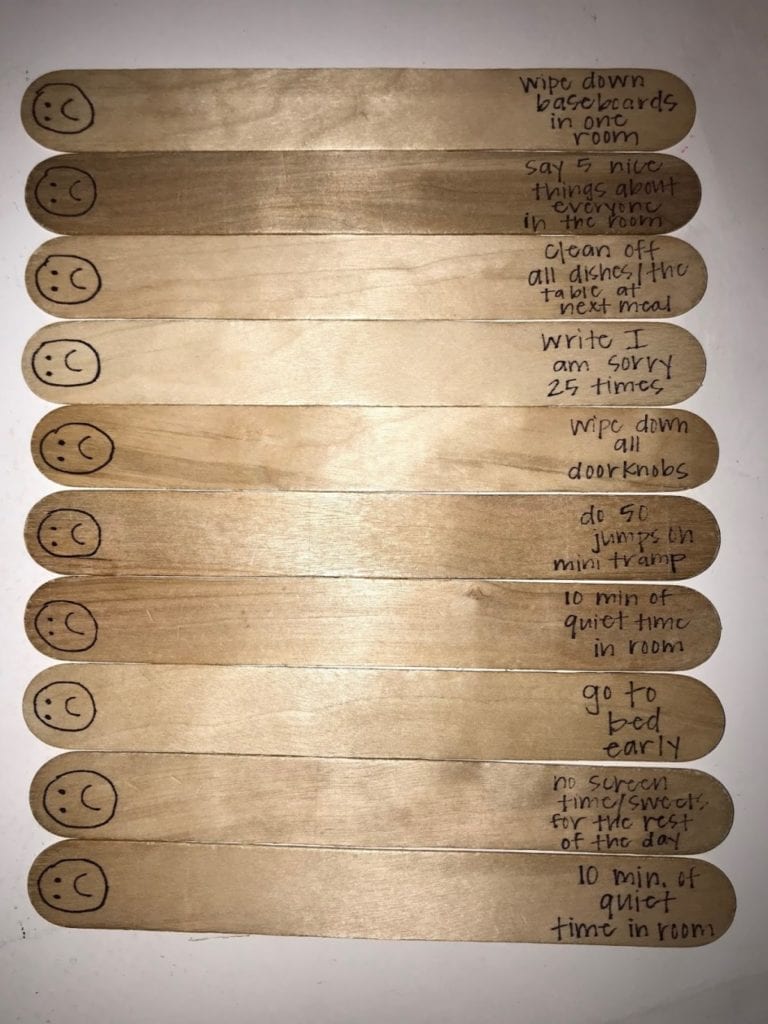 wipe down
baseboards
in one
room
say 5 nice
things about
everyone
in the room
clean off
all dishes/the
table at
next meal
write I
am sorry
25 times
wipe down
all
doorknobs
do 50
jumps on
mini tramp
10 min of
quiet time
in room
go to
bed
early
no screen
time/sweets
for the rest
of the day
10 min. of
quiet
time in room